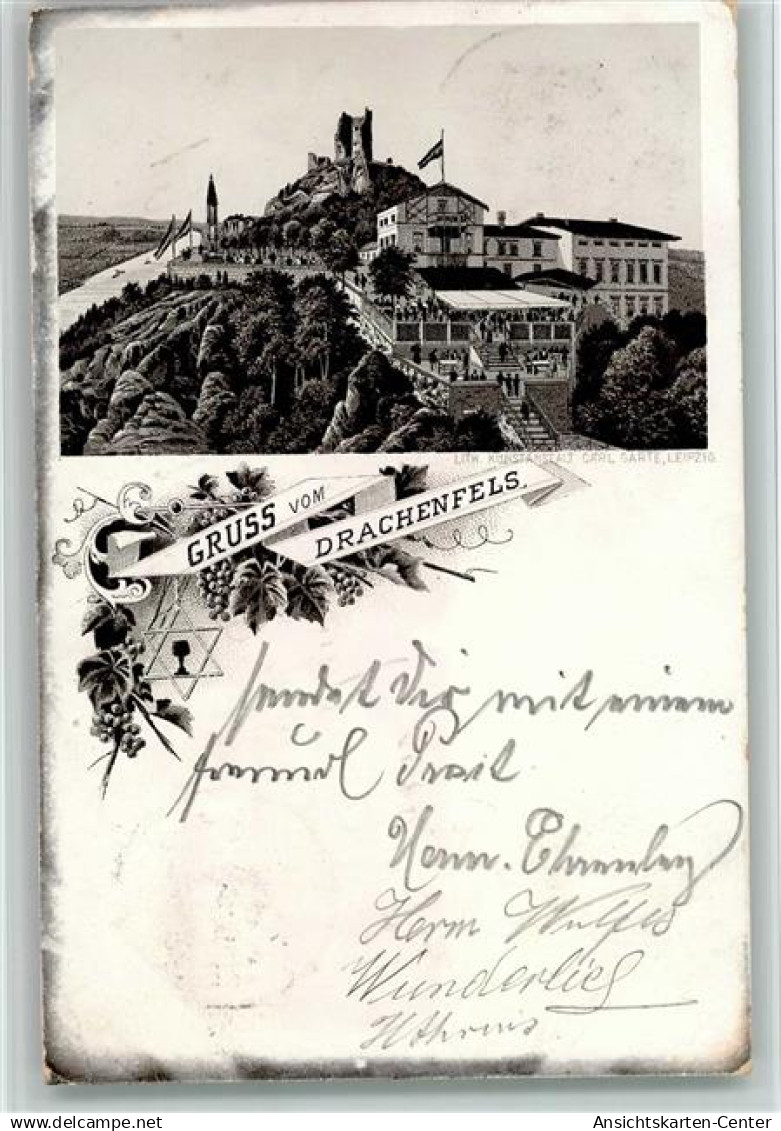 LITH. KUNSTANSTALT CARL GARTE, LEIPZIG.
GRUSS VOM
DRACHENFELS.
sendet Dir mit einem
freundl Prosit
Herm. Ehrenberg
Herm Wulfes
Wunderlich
Ansichtskarten-Center